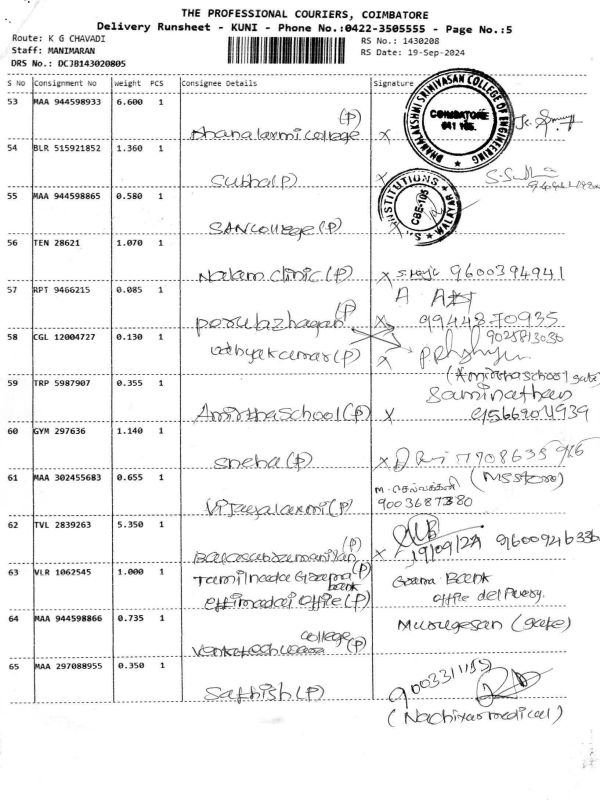 THE PROFESSIONAL COURIERS, COIMBATORE
Delivery Runsheet - KUNI - Phone No.:0422-3505555 - Page No.:5
Route: K G CHAVADI
RS No.: 1430208
Staff: MANIMARAN
RS Date: 19-Sep-2024
DRS No.: DCJB143020805
S No Consignment No Weight PCS Consignee Details Signature
53 MAA 944598933 6.600 1
Dhanalaxmi College (P) X
DHANALAKSHMI SRINIVASAN COLLEGE OF ENGINEERING
COIMBATORE
641 105.
54 BLR 515921852 1.360 1
Subha (P) X
55 MAA 944598865 0.580 1
SAN College (P) X
INSTITUTIONS
CBE-105
WALAYAR
56 TEN 28621 1.070 1
Nalam clinic (P) X 9600394941
57 RPT 9466215 0.085 1
(P) X 9944870935
58 CGL 12004727 0.130 1
udhyakumar (P) X
(Amirtha School gate)
59 TRP 5987907 0.355 1
Saminathan
Amirtha School (P) X
60 GYM 297636 1.140 1
Sneha (P) X
61 MAA 302455683 0.655 1
(MS Store)
Vijayalaxmi (P) 9003687380
62 TVL 2839263 5.350 1
Balasubramanian (P) X 19/09/24
63 VLR 1062545 1.000 1
Tamilnadu Grama bank (P) Grama Bank
ettimadai office (P) office delivery.
64 MAA 944598866 0.735 1
Murugesan (gate)
Venkateshwara college (P)
65 MAA 297088955 0.350 1
Sathish (P)
(Nachiyar medical)